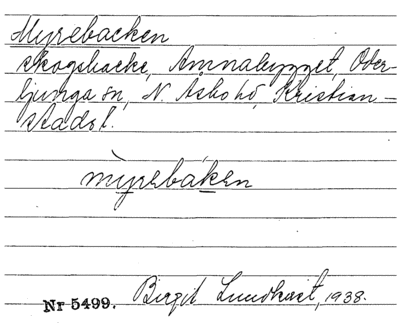 Myrebacken
skogsbacke, Amnabygget, Oder-
ljunga sn, N. Åsbo hd, Kristian-
stads l.
mỳrebák̲en
Nr 5499. Birgit Lundkvist, 1938.